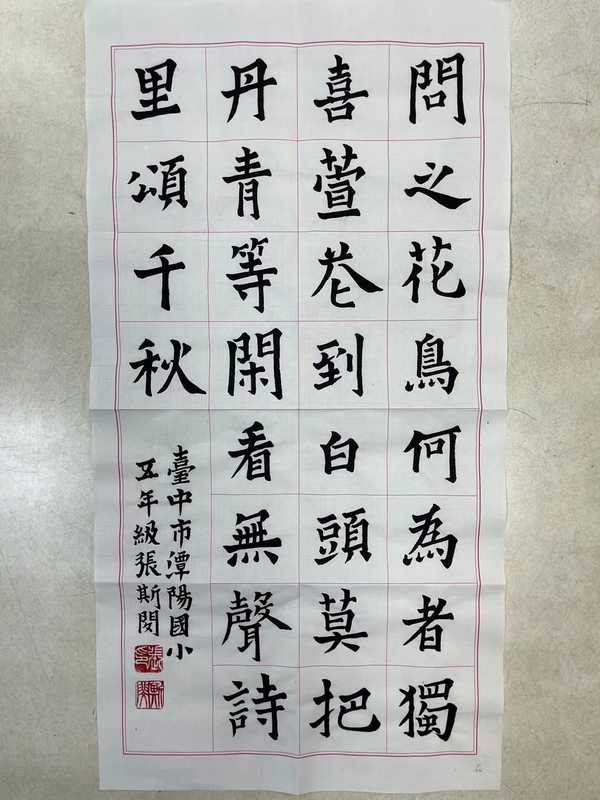 問之花鳥何為者獨
喜萱花到白頭莫把
丹青等閑看無聲詩
里頌千秋
臺中市潭陽國小
五年級張斯閔